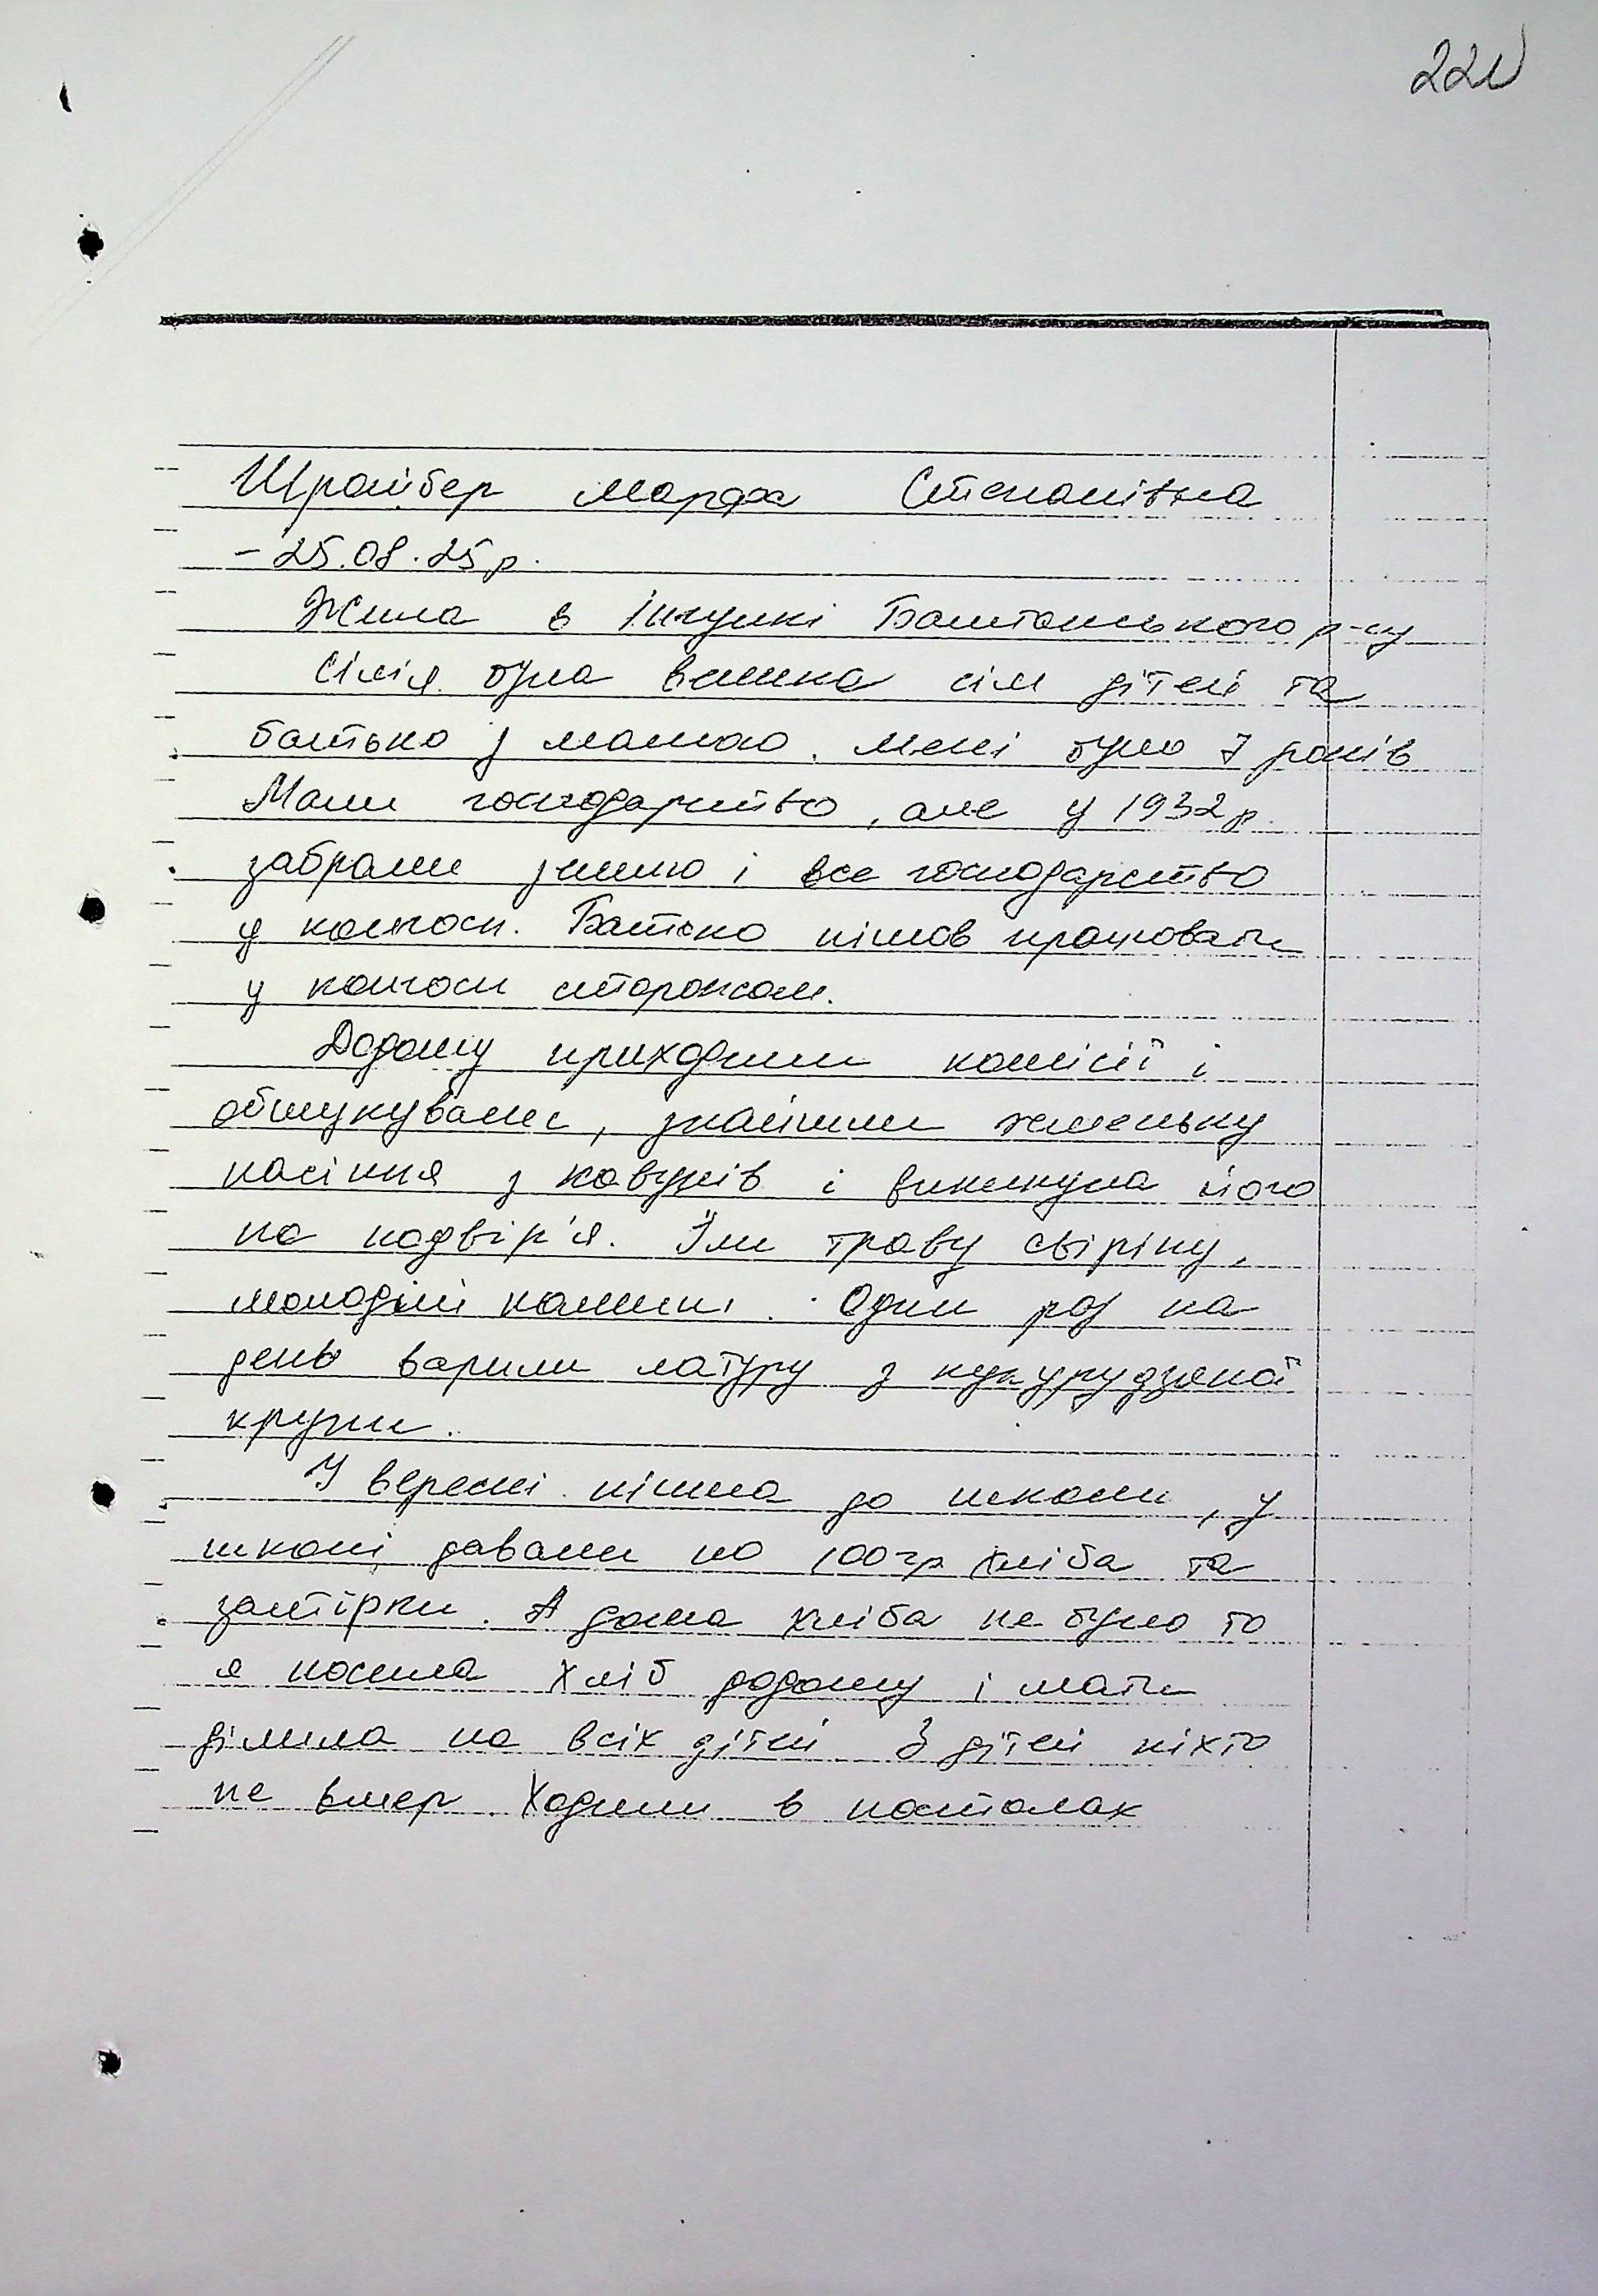 221
Шрайбер Марфа Степанівна
- 25.08.25р.
Жила в Інгулкі Баштанського р-ну
Сімія була велика сім дітей та
батько з мамою. Мені було 7 років
Мали господарство, але у 1932р.
забрали землю і все господарство
у колгосп. Батько пішов працювати
у колгосп сторожом.
Додому приходили комісії і
обшукували, знайшли жменьку
насіння з кавунів і викинула його
на подвір'я. Їли траву свіріпу,
молоді калачики. Один раз на
день варили мамалигу з кукурудзяної
крупи.
У вересні пішла до школи, у
школі давали по 100гр хліба та
затірки. А дома хліба не було то
я носила хліб додому і мати
ділила на всіх дітей З дітей ніхто
не вмер. Ходили в постолах